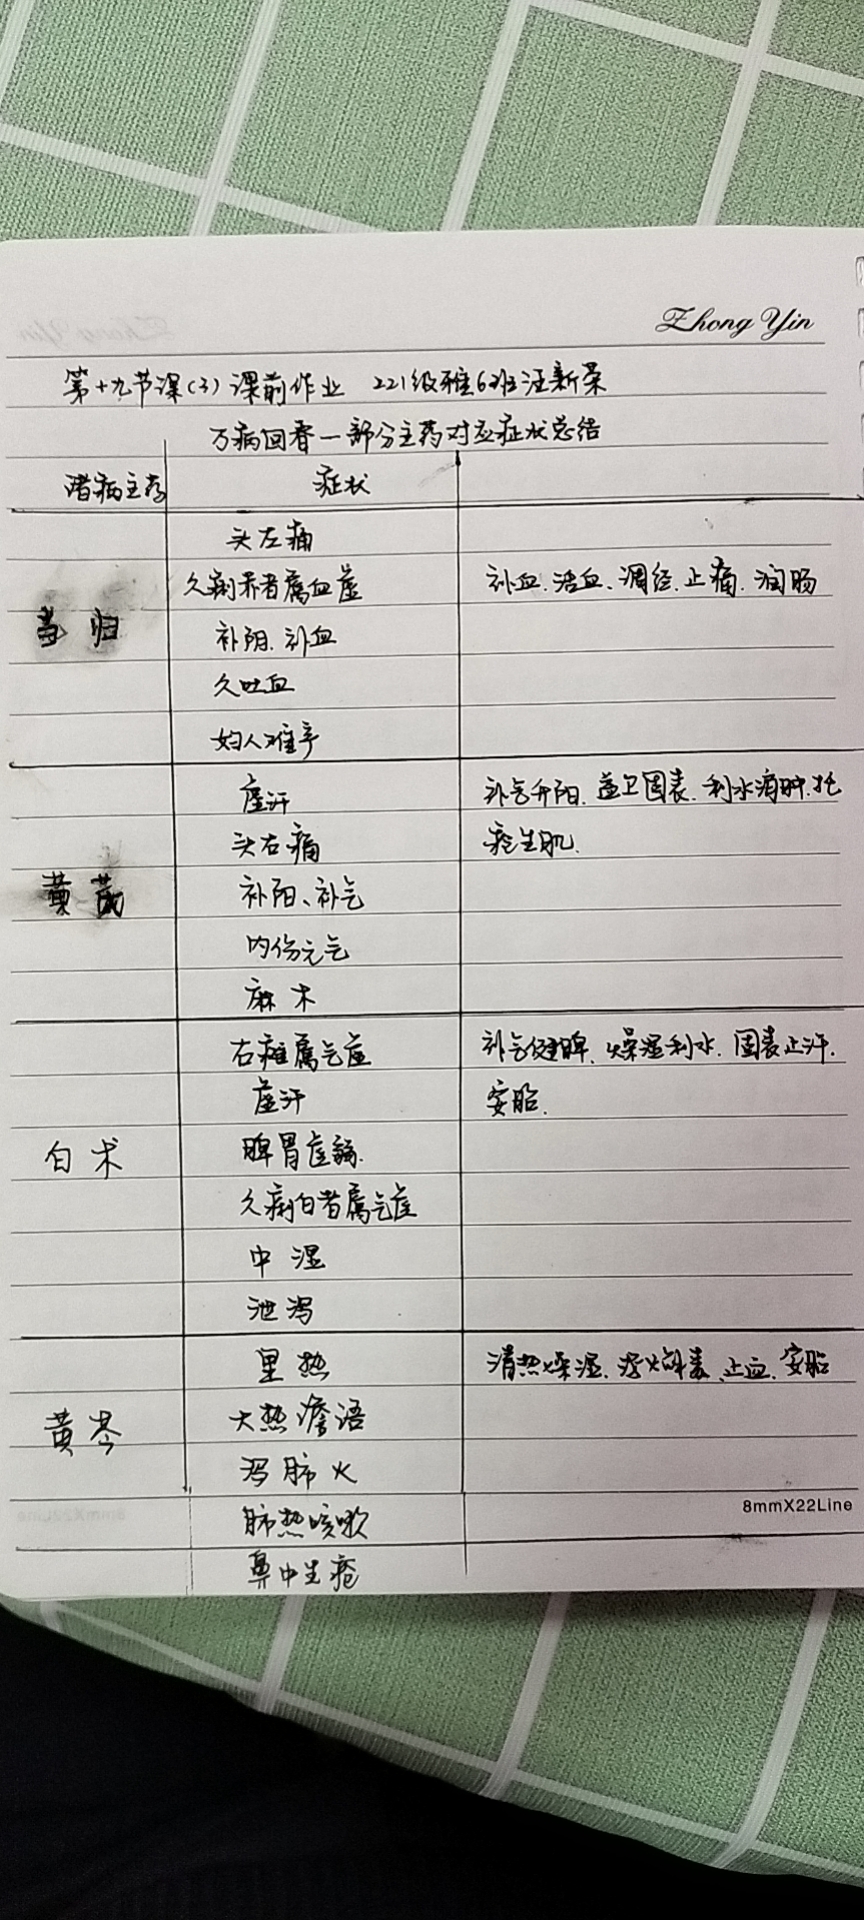 Zhong Yin
第十九节课(3)课前作业 221级雅6班汪新荣
万病回春一部分主药对应症状总结
诸病主药 症状
头左痛
久痢赤者属血虚 补血、活血、调经、止痛、润肠
当归 补阴、补血
久吐血
妇人难产
虚汗 补气升阳、益卫固表、利水消肿、托
头右痛 疮生肌.
黄芪 补阳、补气
内伤元气
麻木
右瘫属气虚 补气健脾、燥湿利水、固表止汗、
虚汗 安胎.
白术 脾胃虚弱.
久痢白者属气虚
中湿
泄泻
里热 清热燥湿、泻火解毒、止血、安胎
黄芩 大热谵语
泻肺火
肺热咳嗽 8mmX22Line
鼻中生疮